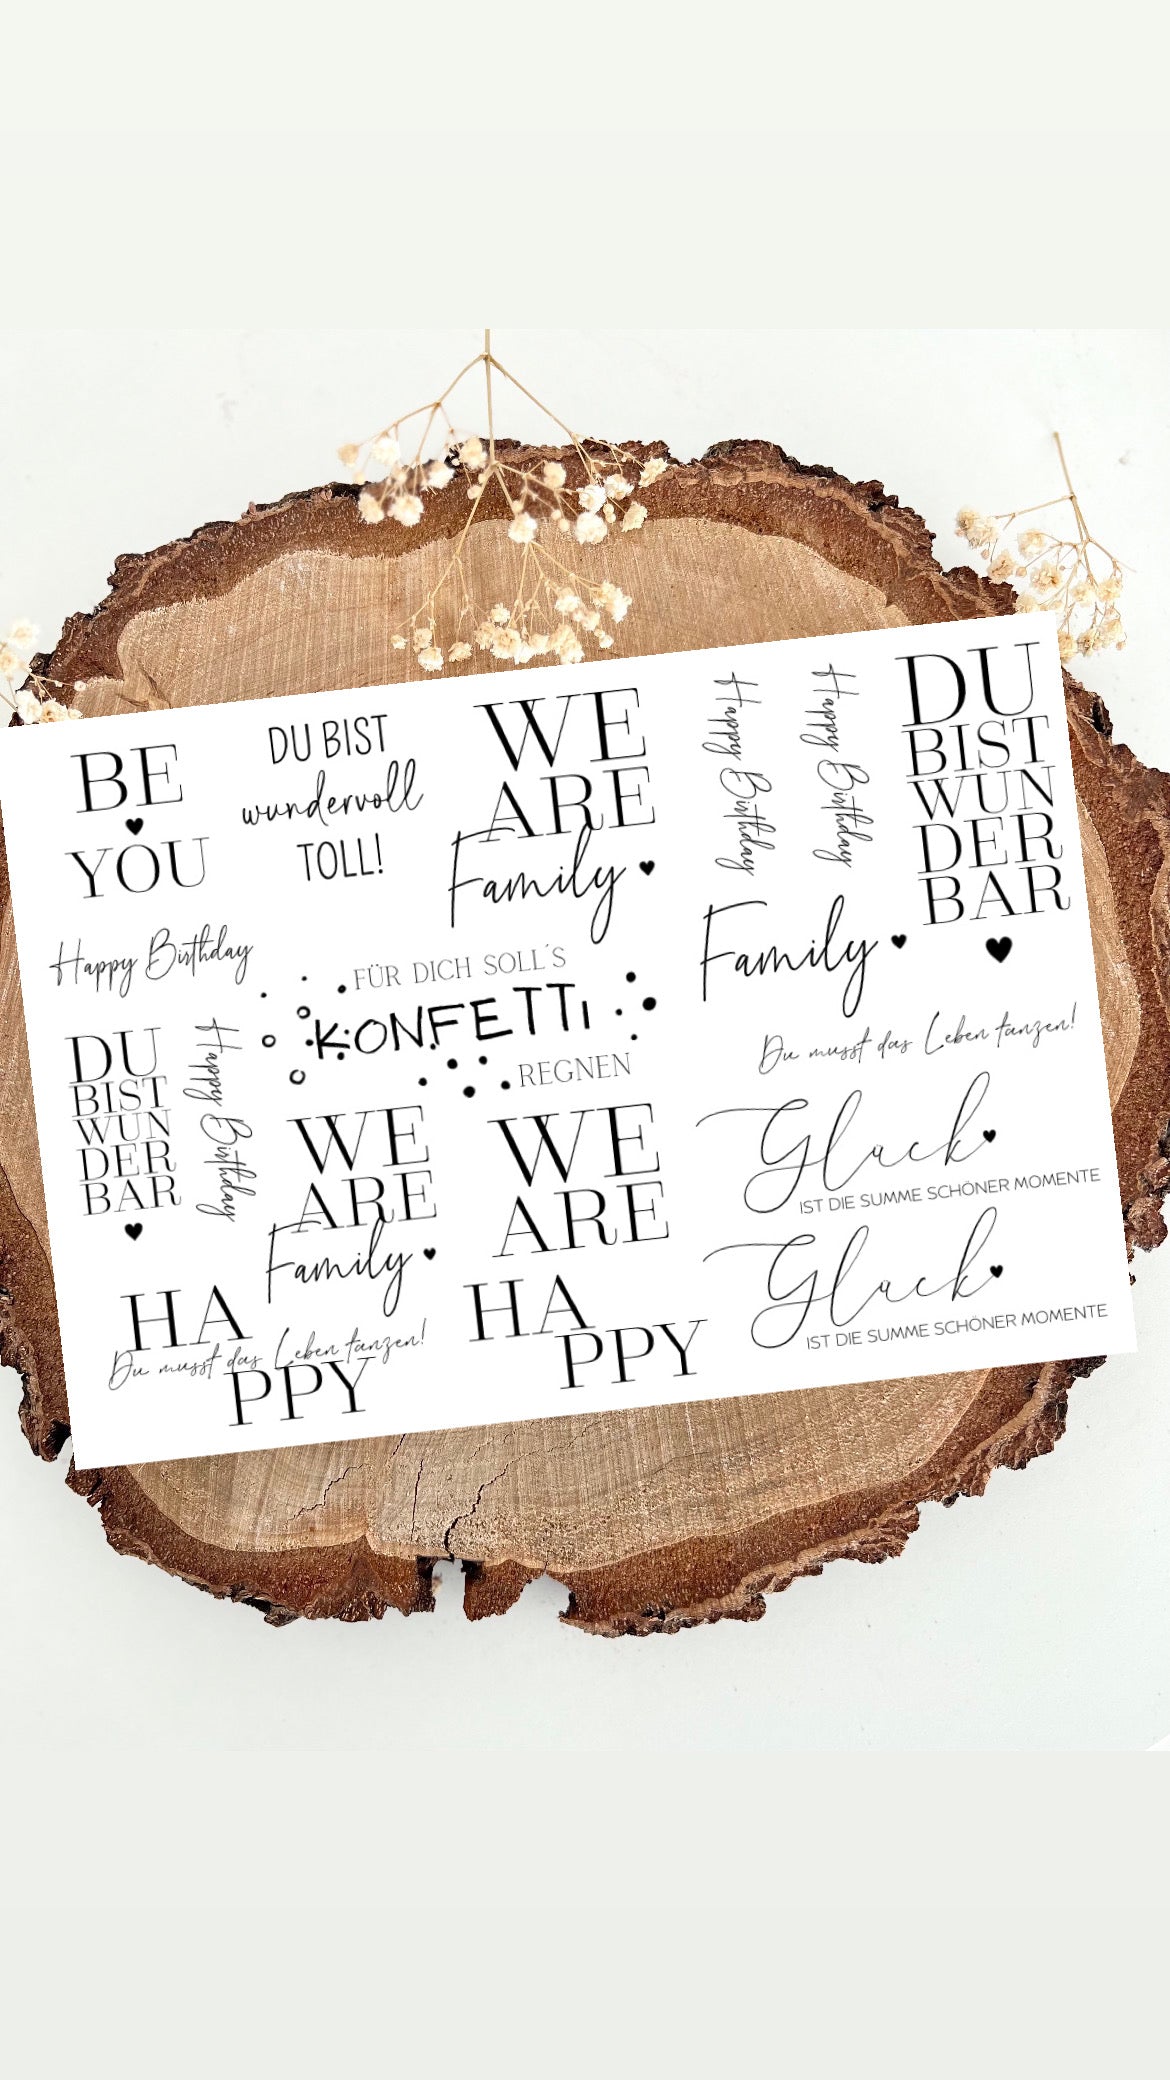 BE
YOU
DU BIST
wundervoll
TOLL!
WE
ARE
Family
Happy Birthday
Happy Birthday
DU
BIST
WUN
DER
BAR
Happy Birthday
FÜR DICH SOLL´S
KONFETTI
REGNEN
Family
Du musst das Leben tanzen!
DU
BIST
WUN
DER
BAR
Happy Birthday
WE
ARE
Family
WE
ARE
Glück
IST DIE SUMME SCHÖNER MOMENTE
Glück
IST DIE SUMME SCHÖNER MOMENTE
HA
Du musst das Leben tanzen!
PPY
HA
PPY